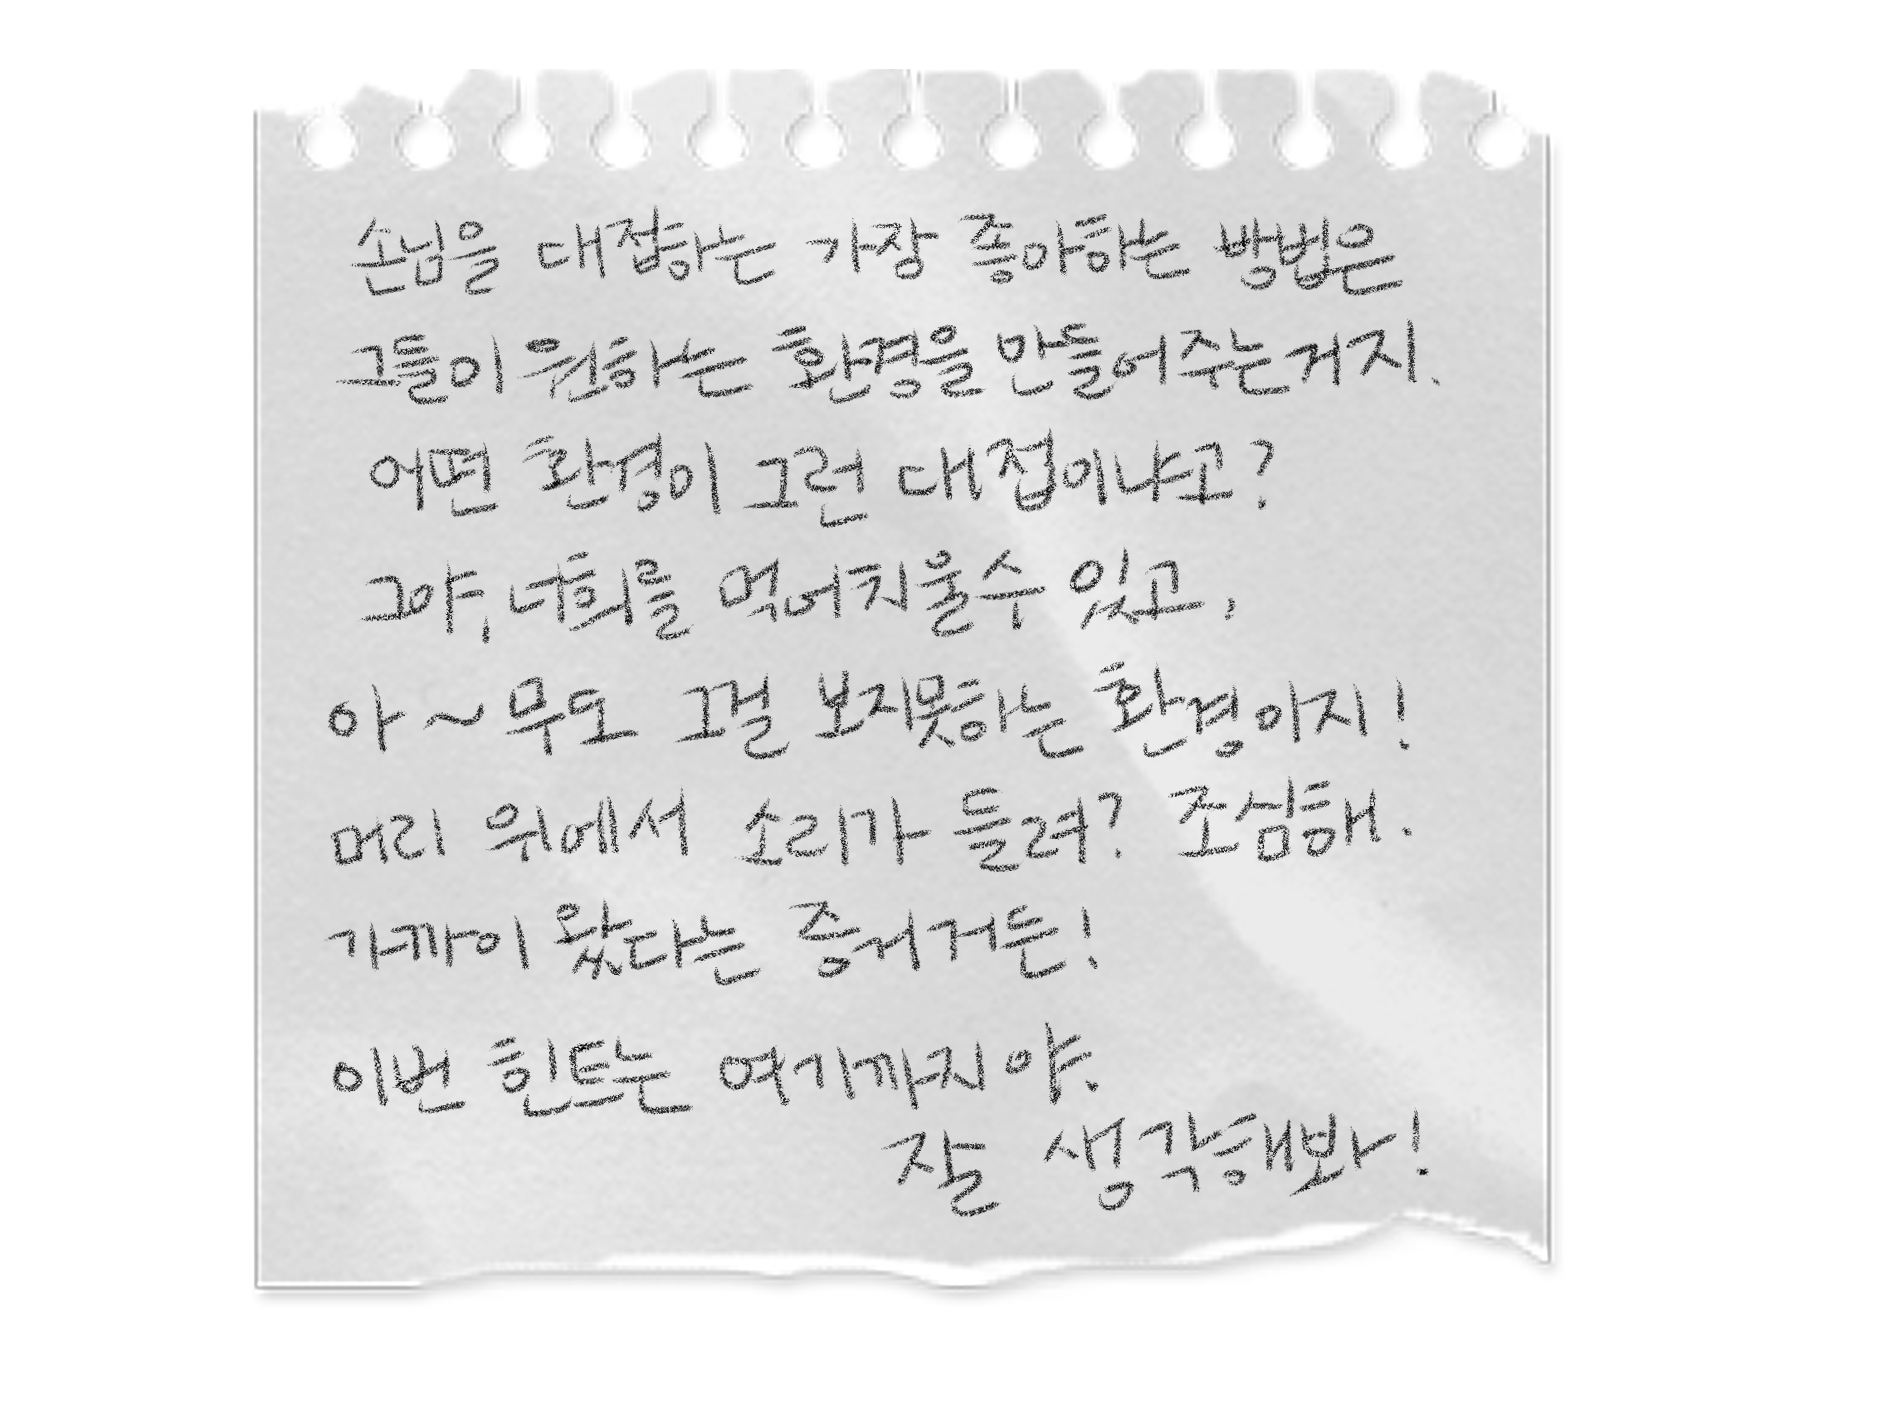 손님을 대접하는 가장 좋아하는 방법은
그들이 원하는 환경을 만들어주는거지.
어떤 환경이 그런 대접이냐고?
그야, 너희를 먹어치울수 있고,
아~무도 그걸 보지못하는 환경이지!
머리 위에서 소리가 들려? 조심해.
가까이 왔다는 증거거든!
이번 힌트는 여기까지야.
잘 생각해봐!